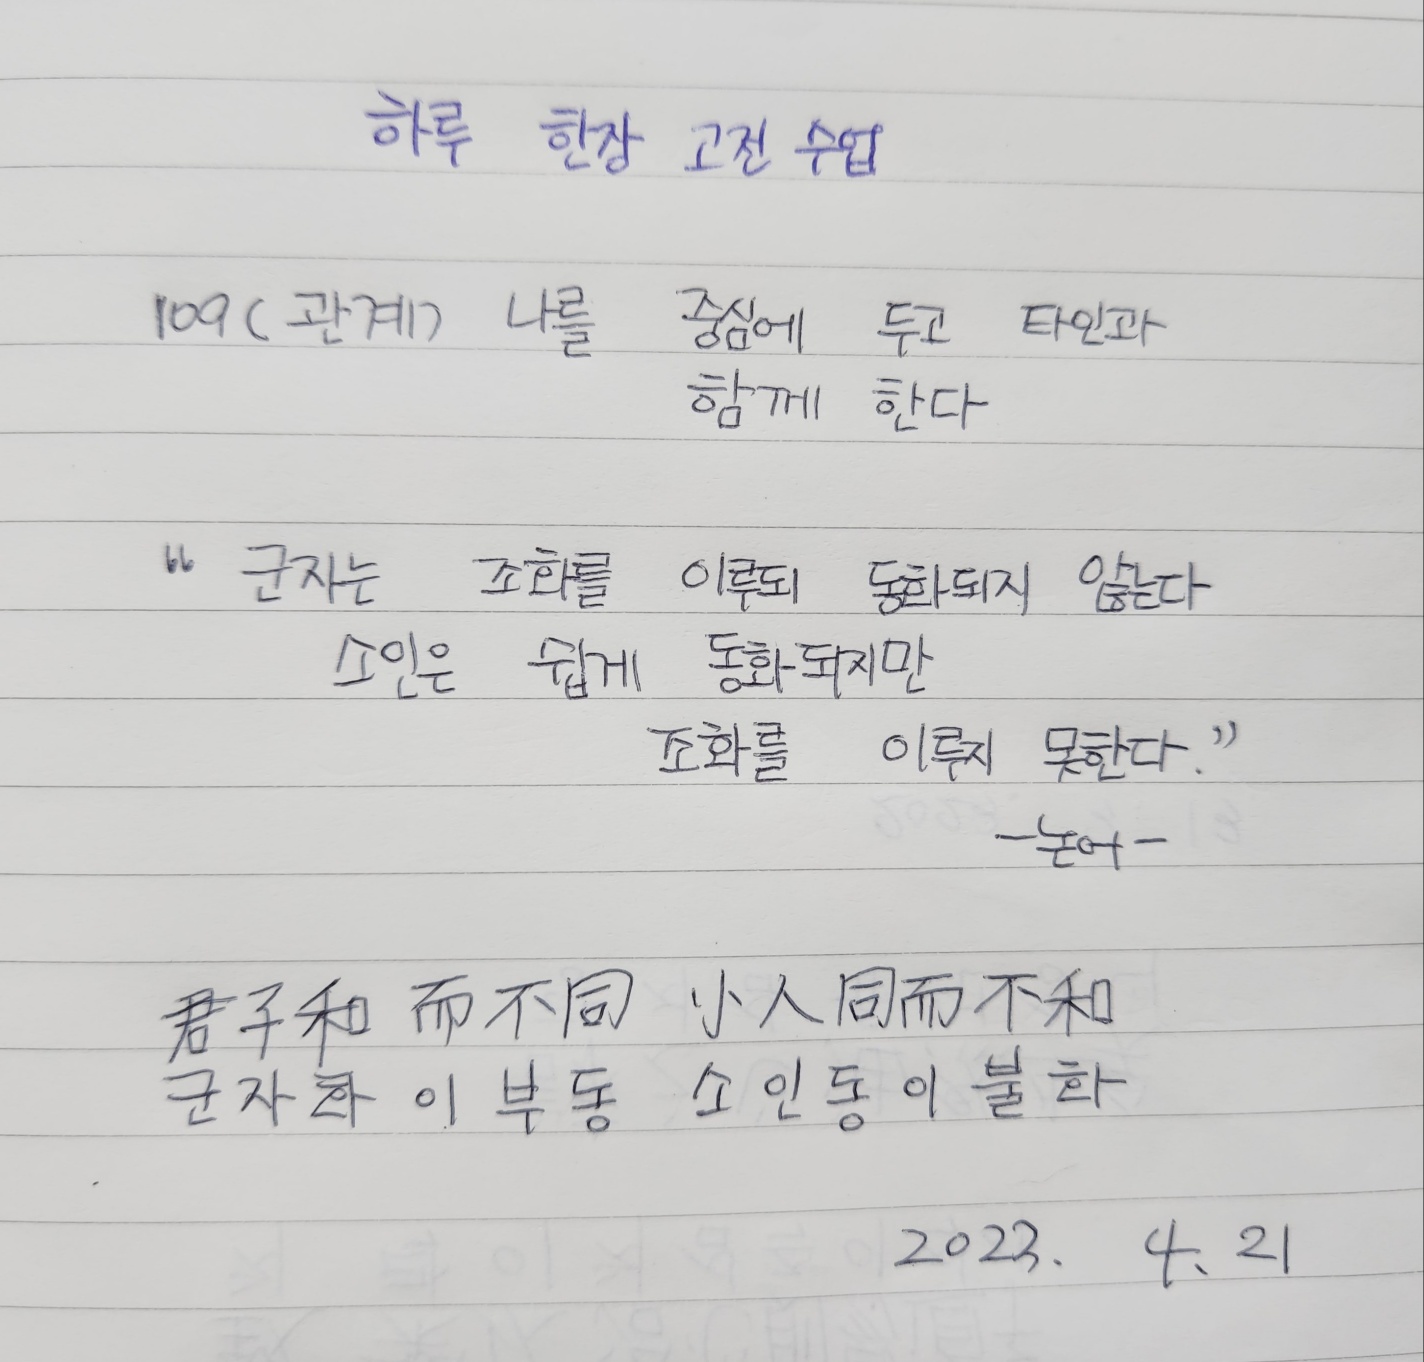 하루 한장 고전 수업
109(관계) 나를 중심에 두고 타인과
함께 한다
“ 군자는 조화를 이루되 동화되지 않는다
소인은 쉽게 동화되지만
조화를 이루지 못한다.”
-논어-
君子和 而不同 小人同而不和
군자화 이 부동 소인동이불화
2023. 4. 21